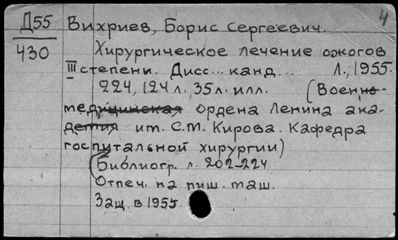 Д55 Вихриев, Борис Сергеевич. 4
430 Хирургическое лечение ожогов
III степени. Дисс... канд... Л., 1955.
224, 124 л., 35 л. илл. (Военно-
медицинская ордена Ленина ака-
демия им. С.М. Кирова. Кафедра
госпитальной хирургии)
(Библиогр. л. 202-224
Отпеч. на пиш. маш.
Защ. в 1955